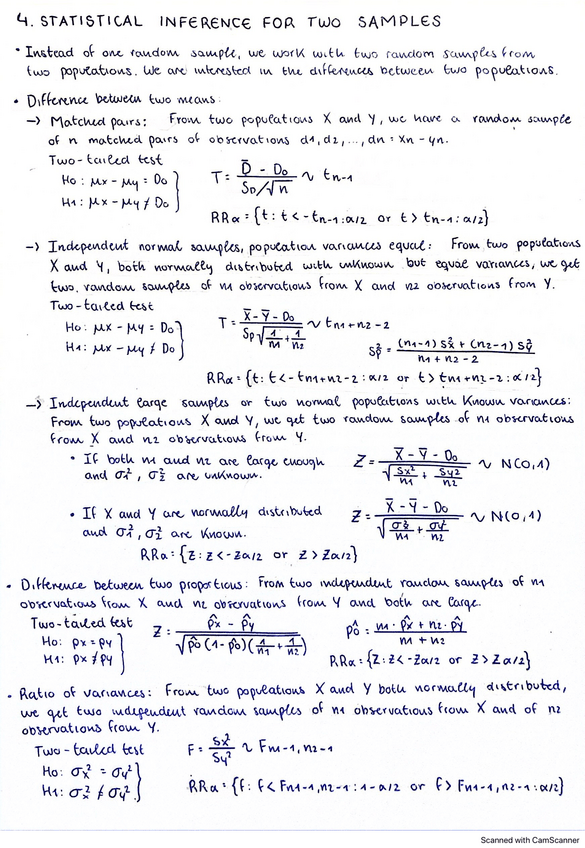 4. STATISTICAL INFERENCE FOR TWO SAMPLES
• Instead of one random sample, we work with two random samples from
two populations. We are interested in the differences between two populations.
• Difference between two means:
→ Matched pairs: From two populations X and Y, we have a random sample
of n matched pairs of observations d1, d2, ..., dn = xn - yn.
Two-tailed test
H0: μx - μy = D0
H1: μx - μy ≠ D0
T = (D̄ - D0) / (SD/√n) ~ tn-1
RRα = {t: t < -tn-1:α/2 or t > tn-1:α/2}
→ Independent normal samples, population variances equal: From two populations
X and Y, both normally distributed with unknown but equal variances, we get
two random samples of n1 observations from X and n2 observations from Y.
Two-tailed test
H0: μx - μy = D0
H1: μx - μy ≠ D0
T = (X̄ - Ȳ - D0) / (Sp √(1/n1 + 1/n2)) ~ tn1+n2-2
Sp² = ((n1-1) Sx² + (n2-1) Sy²) / (n1 + n2 - 2)
RRα = {t: t < -tn1+n2-2:α/2 or t > tn1+n2-2:α/2}
→ Independent large samples or two normal populations with known variances:
From two populations X and Y, we get two random samples of n1 observations
from X and n2 observations from Y.
• If both n1 and n2 are large enough
and σ1², σ2² are unknown.
Z = (X̄ - Ȳ - D0) / √(Sx²/n1 + Sy²/n2) ~ N(0,1)
• If X and Y are normally distributed
and σ1², σ2² are known.
Z = (X̄ - Ȳ - D0) / √(σx²/n1 + σy²/n2) ~ N(0,1)
RRα = {Z: Z < -Zα/2 or Z > Zα/2}
• Difference between two proportions: From two independent random samples of n1
observations from X and n2 observations from Y and both are large.
Two-tailed test
H0: px = py
H1: px ≠ py
Z = (p̂x - p̂y) / √(p̂0 (1 - p̂0)(1/n1 + 1/n2))
p̂0 = (n1 · p̂x + n2 · p̂y) / (n1 + n2)
RRα = {Z: Z < -Zα/2 or Z > Zα/2}
• Ratio of variances: From two populations X and Y both normally distributed,
we get two independent random samples of n1 observations from X and of n2
observations from Y.
Two-tailed test
H0: σx² = σy²
H1: σx² ≠ σy²
F = Sx²/Sy² ~ Fn1-1, n2-1
RRα = {f: f < Fn1-1, n2-1:1-α/2 or f > Fn1-1, n2-1:α/2}
Scanned with CamScanner